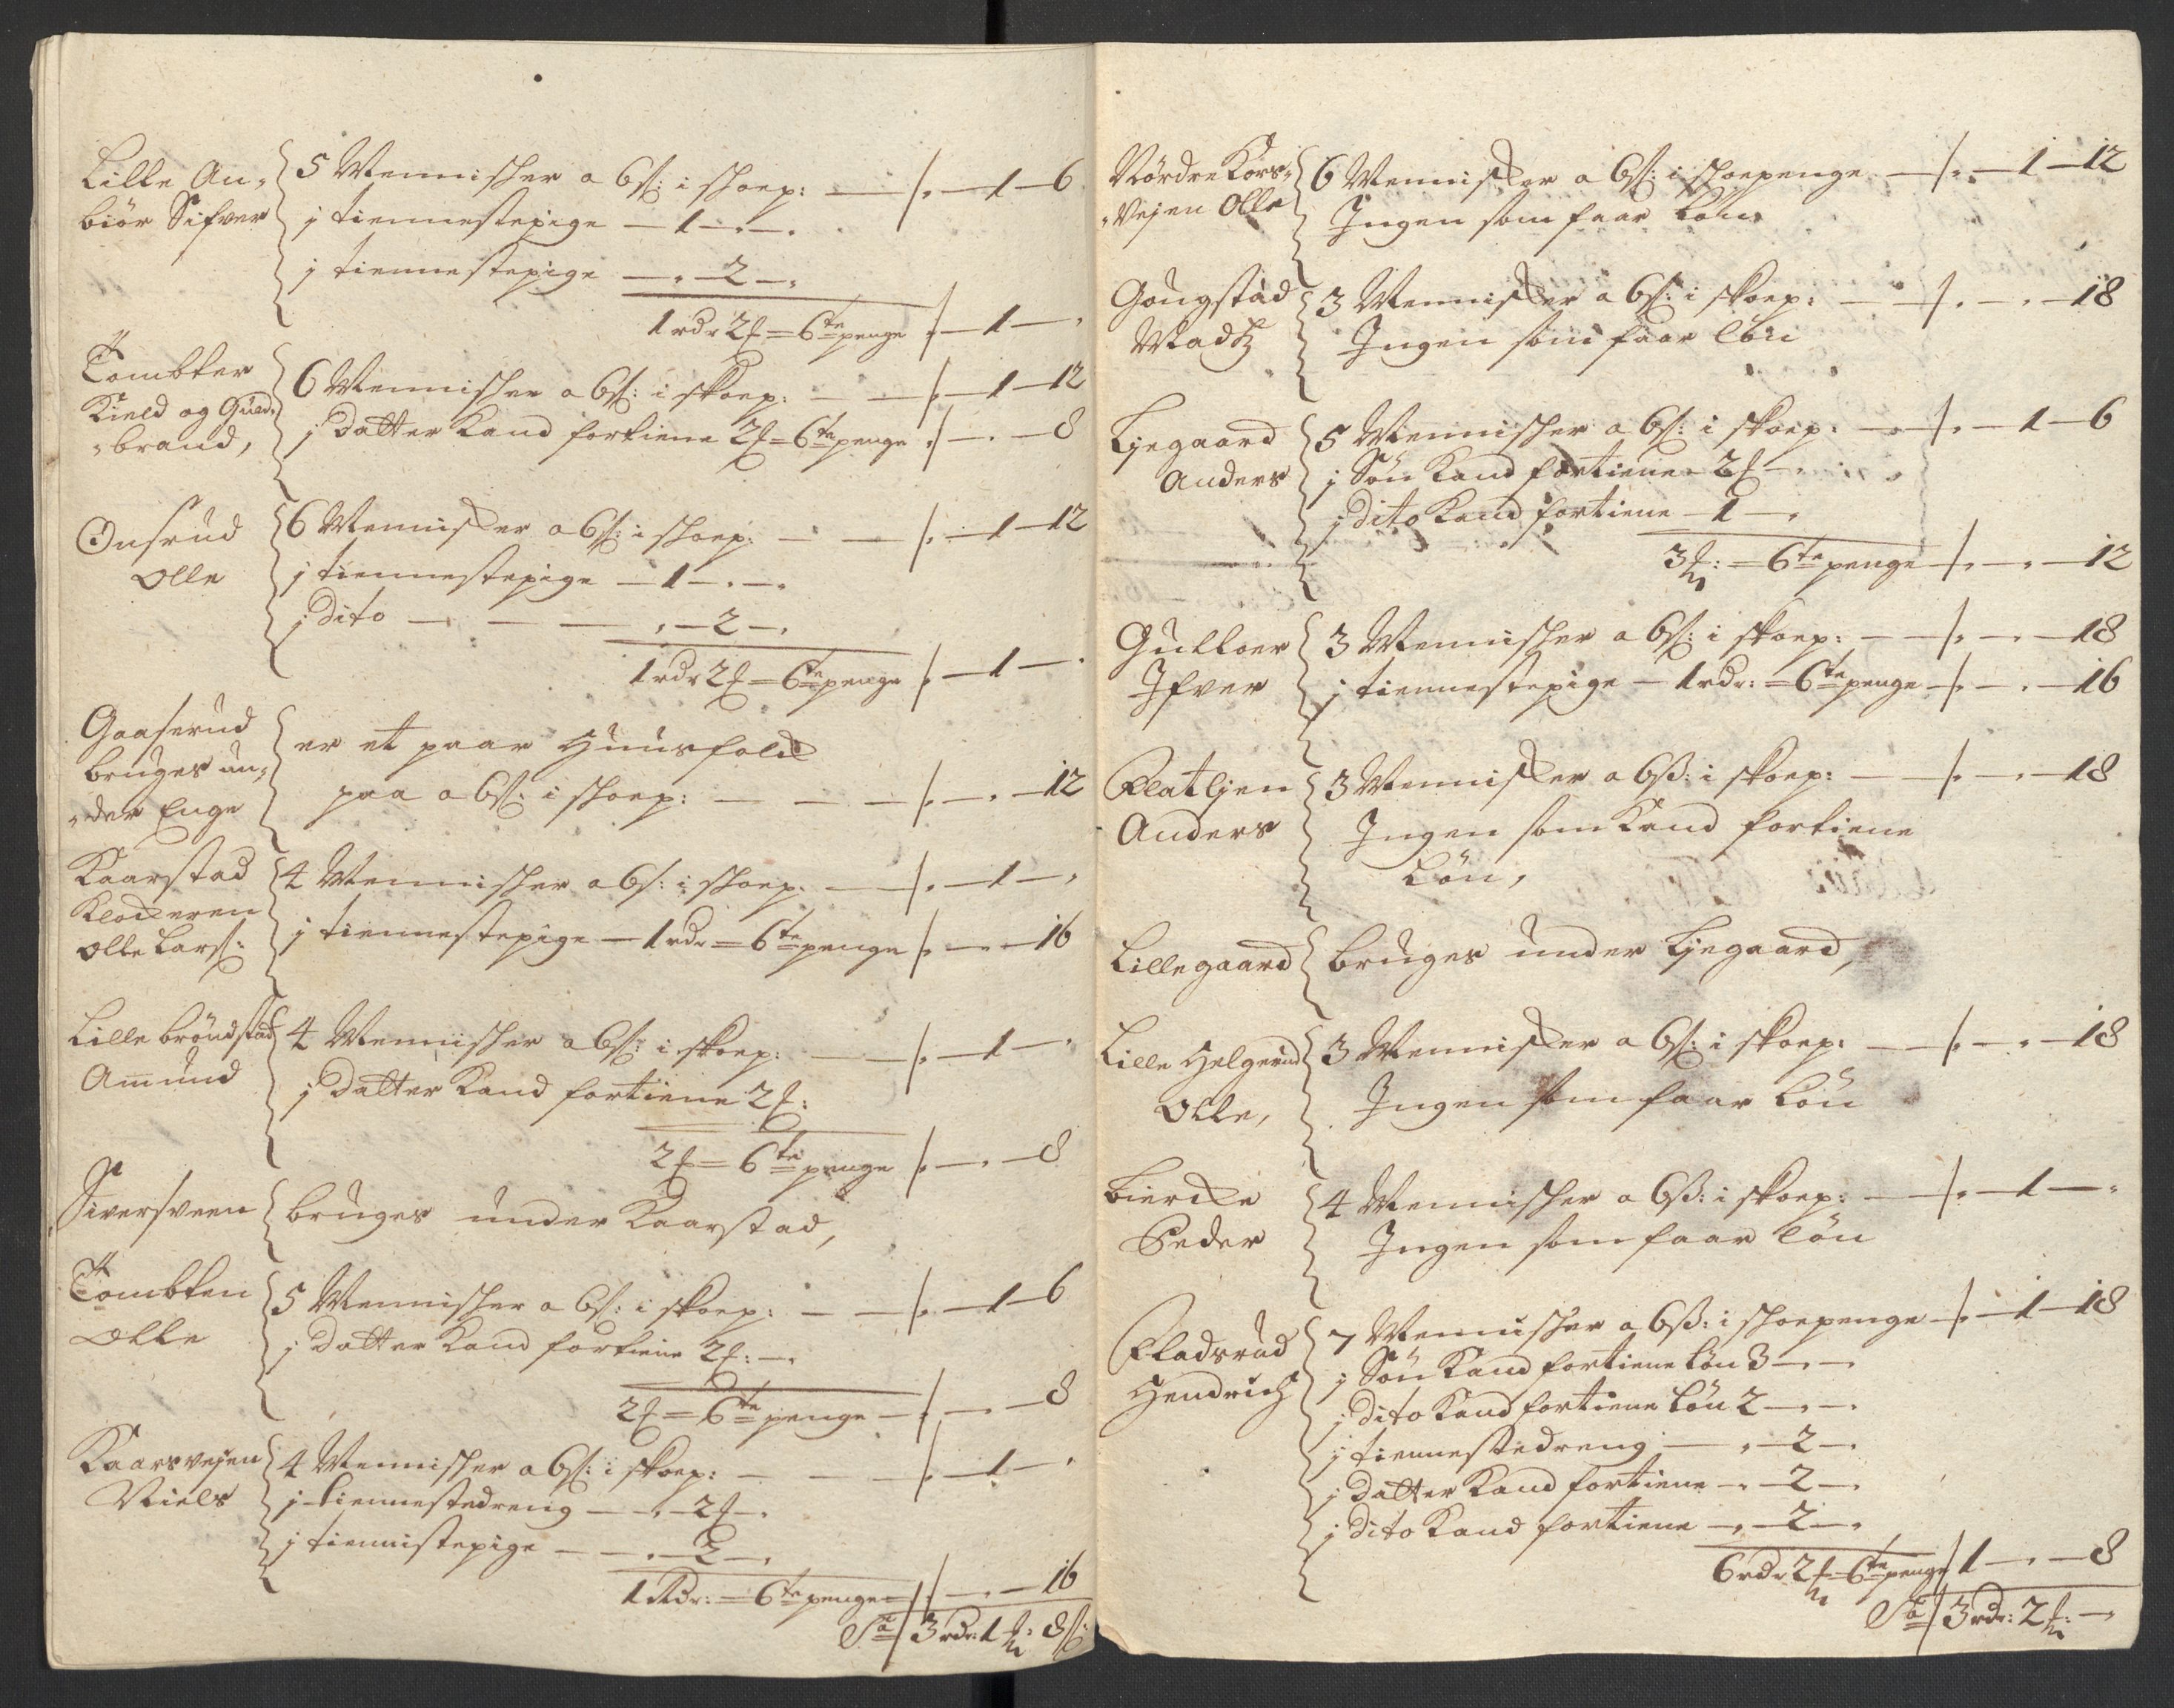 Lille An-
biör Sifver
5 Mennisker a 6 ß: i skoep: — — /. — 1 — 6
j tiennestepige — 1 — . — .
j tiennestepige — . — 2 — .
1 rdr 2 = 6te penge /. — 1 — .
Tombter
Kield og Guld-
-brand,
6 Mennisker a 6 ß: i skoep: — — /. — 1 — 12
j datter kand fortiene 2 = 6te penge /. — . — 8
Onsrud
Olle
6 Mennisker a 6 ß: i skoep: — — /. — 1 — 12
j tiennestepige — 1 — . — .
j dito — — — . — 2 — .
1 rdr 2 = 6te penge /. — 1 — .
Gaaserud
bruges un-
-der Enge
er et paar Huusfolck
paa a 6 ß: i skoep: — — — /. — . — 12
Kaarstad
Klockeren
Olle Larß:
4 Mennisker a 6 ß: i skoep: — — /. — 1 — .
j tiennestepige — 1 rdr = 6te penge /. — . — 16
Lille bröndstad
Amund
4 Mennisker a 6 ß: i skoep: — — /. — 1 — .
j datter kand fortiene 2
2 = 6te penge /. — . — 8
Siversveen
bruges under Kaarstad,
Tombten
Olle
5 Mennisker a 6 ß: i skoep: — — /. — 1 — 6
j datter kand fortiene 2 : — .
2 = 6te penge — /. — . — 8
Kaarsvejen
Niels
4 Mennisker a 6 ß: i skoep: — — /. — 1 — .
j tiennestedreng — . — 2 — .
j tiennistepige — . — 2 — .
1 Rdr: = 6te penge — /. — . — 16
Sa / 3 rdr: 1 : 8 ß:
Nördre Kors-
-vejen Olle
6 Mennisker a 6 ß: i skoepenge — /. — 1 — 12
Ingen som faar Lön
Gougstad
Madtz
3 Mennisker a 6 ß: i skoep: — — /. — . — 18
Ingen som faar lön
Ljegaard
Anders
5 Mennisker a 6 ß: i skoep: — /. — 1 — 6
j Sön kand fortiene — 2 — .
j dito kand fortiene — 1 — .
3 : = 6te penge — /. — . — 12
Gulloer
Ifver
3 Mennisker a 6 ß: i skoep: — — /. — . — 18
j tiennestepige — 1 rdr: = 6te penge — /. — . — 16
Flatljen
Anders
3 Mennisker a 6 ß: i skoep: — — /. — . — 18
Ingen som kand fortiene
Lön,
Lillegaard
bruges under Ljegaard,
Lille Helgerud
Olle,
3 Mennisker a 6 ß: i skoep: — — /. — . — 18
Ingen som faar Lön
Biercke
Peder
4 Mennisker a 6 ß: i skoep: — — /. — 1 — .
Ingen som faar lön
Fladsrud
Hendrich
7 Mennisker a 6 ß: i skoepenge — /. — 1 — 18
j Sön kand fortiene Lön 3 — . — .
j dito kand fortiene Lön 2 — . — .
j tiennestedreng — . — 2 — .
j datter kand fortiene — . — 2 — .
j dito kand fortiene — . — 2 — .
6 rdr 2 = 6te penge / 1 — . — 8
Sa / 3 rdr: 2 : — .